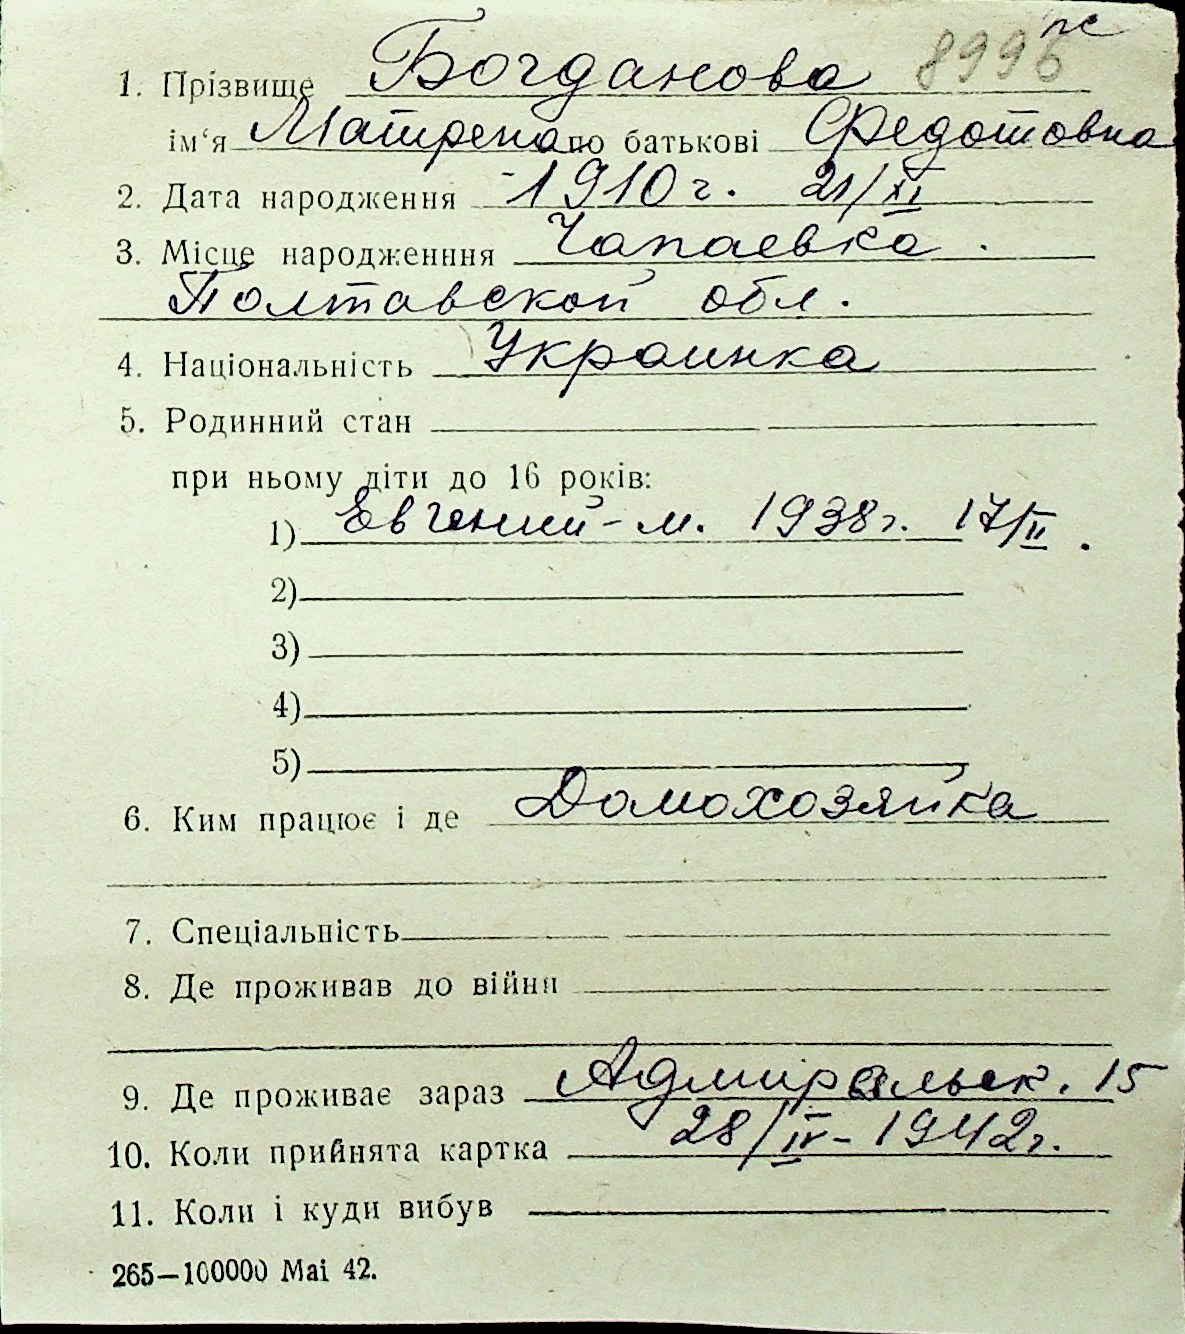 пс
8996
1. Прізвище Богданова
ім‘я Матрена по батькові Федотовна
2. Дата народження 1910 г. 21/XI
3. Місце народженння Чапаевка.
Полтавской обл.
4. Національність Украинка
5. Родинний стан
при ньому діти до 16 років:
1) Евгений - м. 1938 г. 17/II.
2)
3)
4)
5)
6. Ким працює і де Домохозяйка
7. Спеціальність
8. Де проживав до війни
9. Де проживає зараз Адмиральск. 15
10. Коли прийнята картка 28/IV - 1942 г.
11. Коли і куди вибув
265—100000 Mai 42.